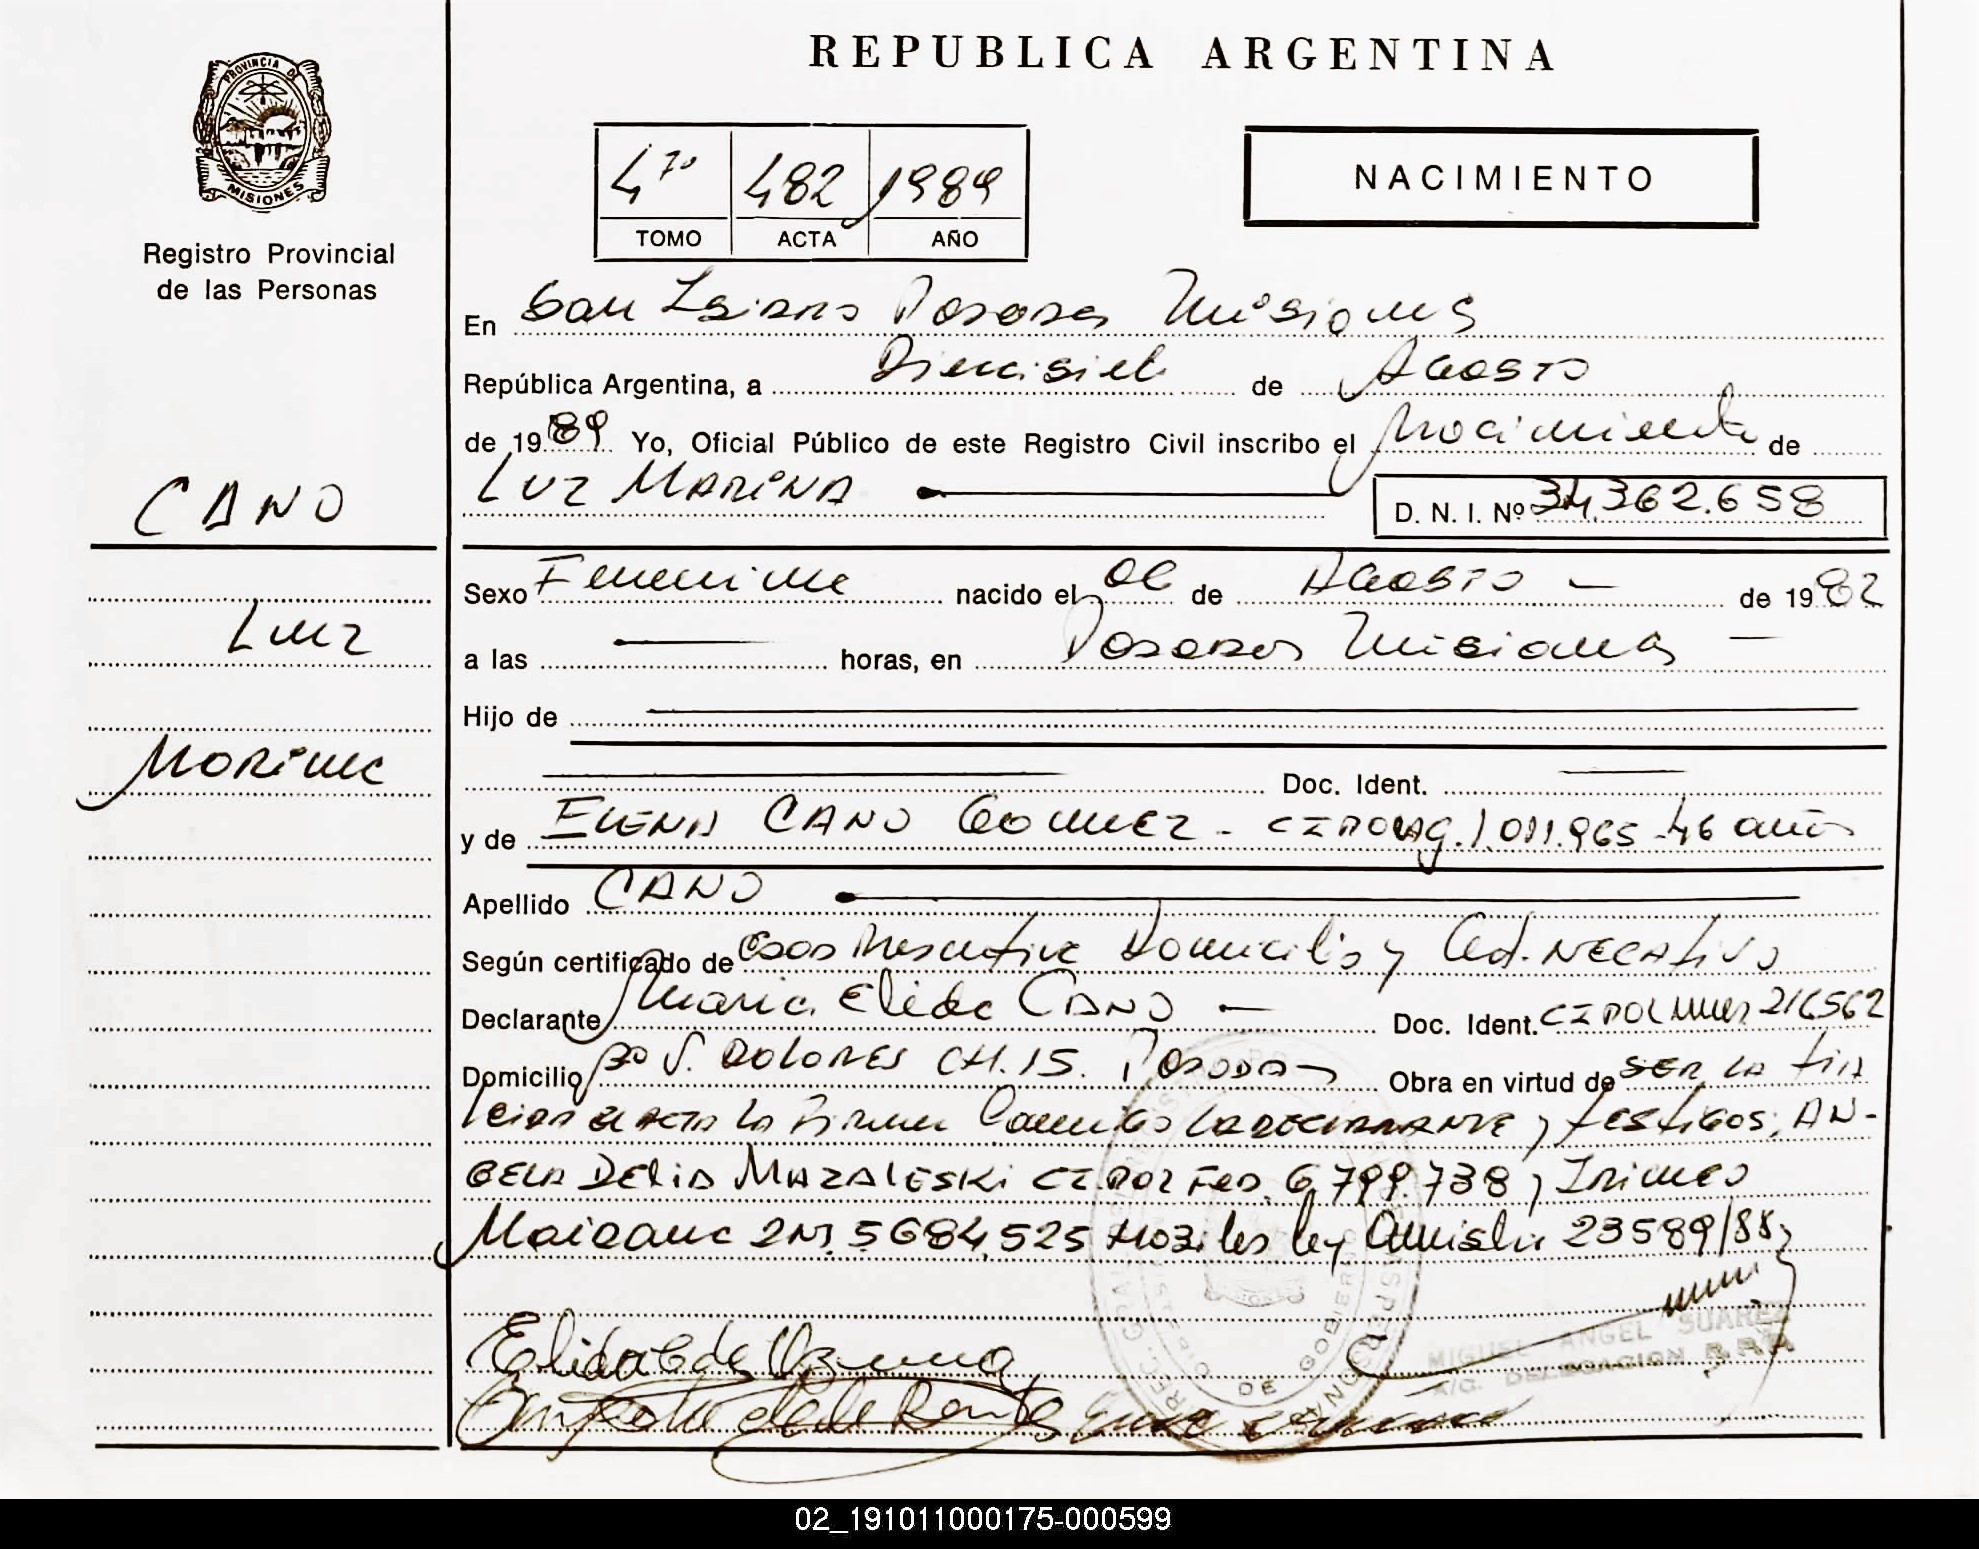 REPUBLICA ARGENTINA
PROVINCIA D
MISIONES
Registro Provincial
de las Personas
4to 482 1989
TOMO ACTA AÑO
NACIMIENTO
En San Isidro Posadas Misiones
República Argentina, a Diecisiete de Agosto
de 1989 Yo, Oficial Público de este Registro Civil inscribo el Nacimiento de
LUZ MARINA D. N. I. Nº 34.362.658
CANO
Luz
Marina
Sexo Femenino nacido el 06 de Agosto de 1982
a las horas, en Posadas Misiones
Hijo de
Doc. Ident.
y de ELENA CANO GOMEZ - 1.011.965 - 46 años
Apellido CANO
Según certificado de Domicilio y Cert. NEGATIVO
Declarante Maria Elida CANO Doc. Ident. CI POL 216562
Domicilio Bº V. DOLORES CH. 15. Posadas Obra en virtud de SER LA TIA
Leida el acta la firman LA DECLARANTE y testigos; AN-
GELA DELIA MAZALESKI CI POL FED. 6.799.738 y
5.684.525 ley Amnistia 23589/88
MIGUEL ANGEL SUAREZ
A/C. DELEGACION
02_191011000175-000599